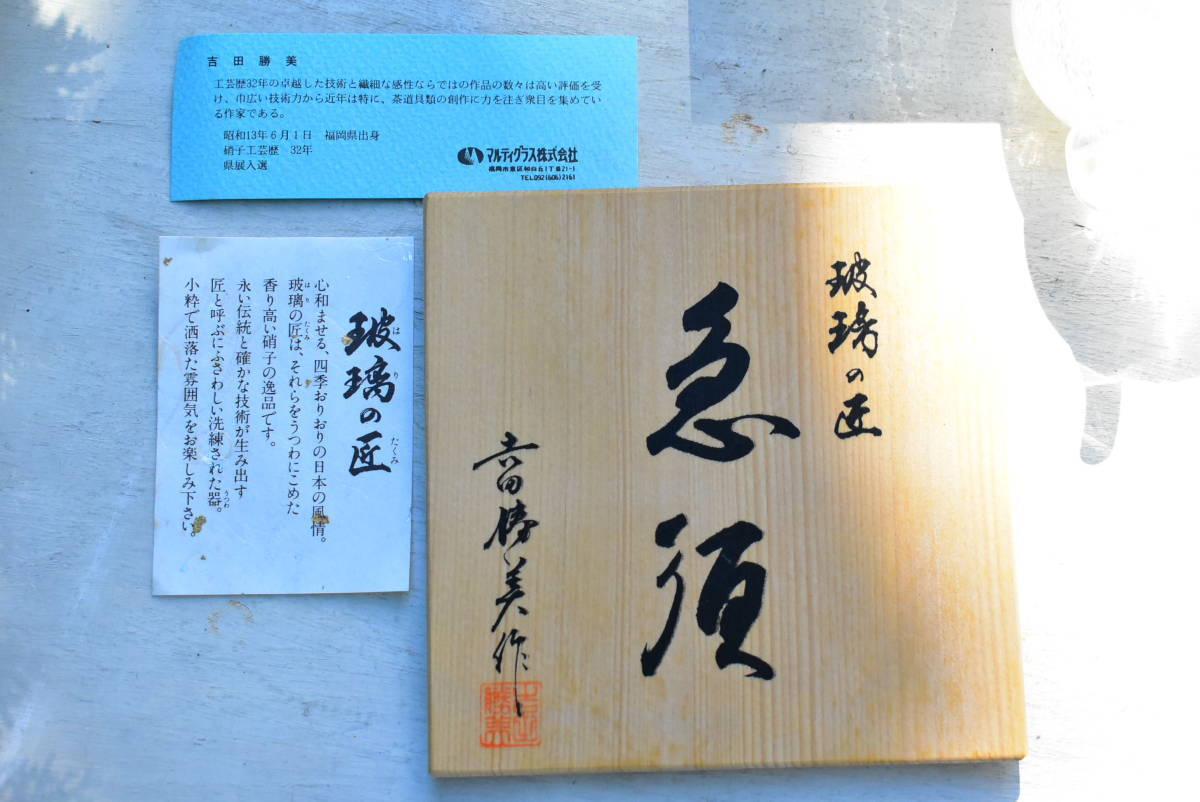 吉田勝美
工芸歴32年の卓越した技術と繊細な感性ならではの作品の数々は高い評価を受
け、巾広い技術力から近年は特に、茶道具類の創作に力を注ぎ衆目を集めてい
る作家である。
昭和13年6月1日 福岡県出身
硝子工芸歴 32年
県展入選
マルティグラス株式会社
福岡市東区和白丘1丁目21-1
TEL092(606)2161
玻璃の匠
はり
たくみ
心和ませる、四季おりおりの日本の風情。
玻璃の匠は、それらをうつわにこめた
はり
たくみ
香り高い硝子の逸品です。
永い伝統と確かな技術が生み出す
匠と呼ぶにふさわしい洗練された器。
うつわ
小粋で洒落た雰囲気をお楽しみ下さい。
玻璃の匠
急須
吉田勝美作